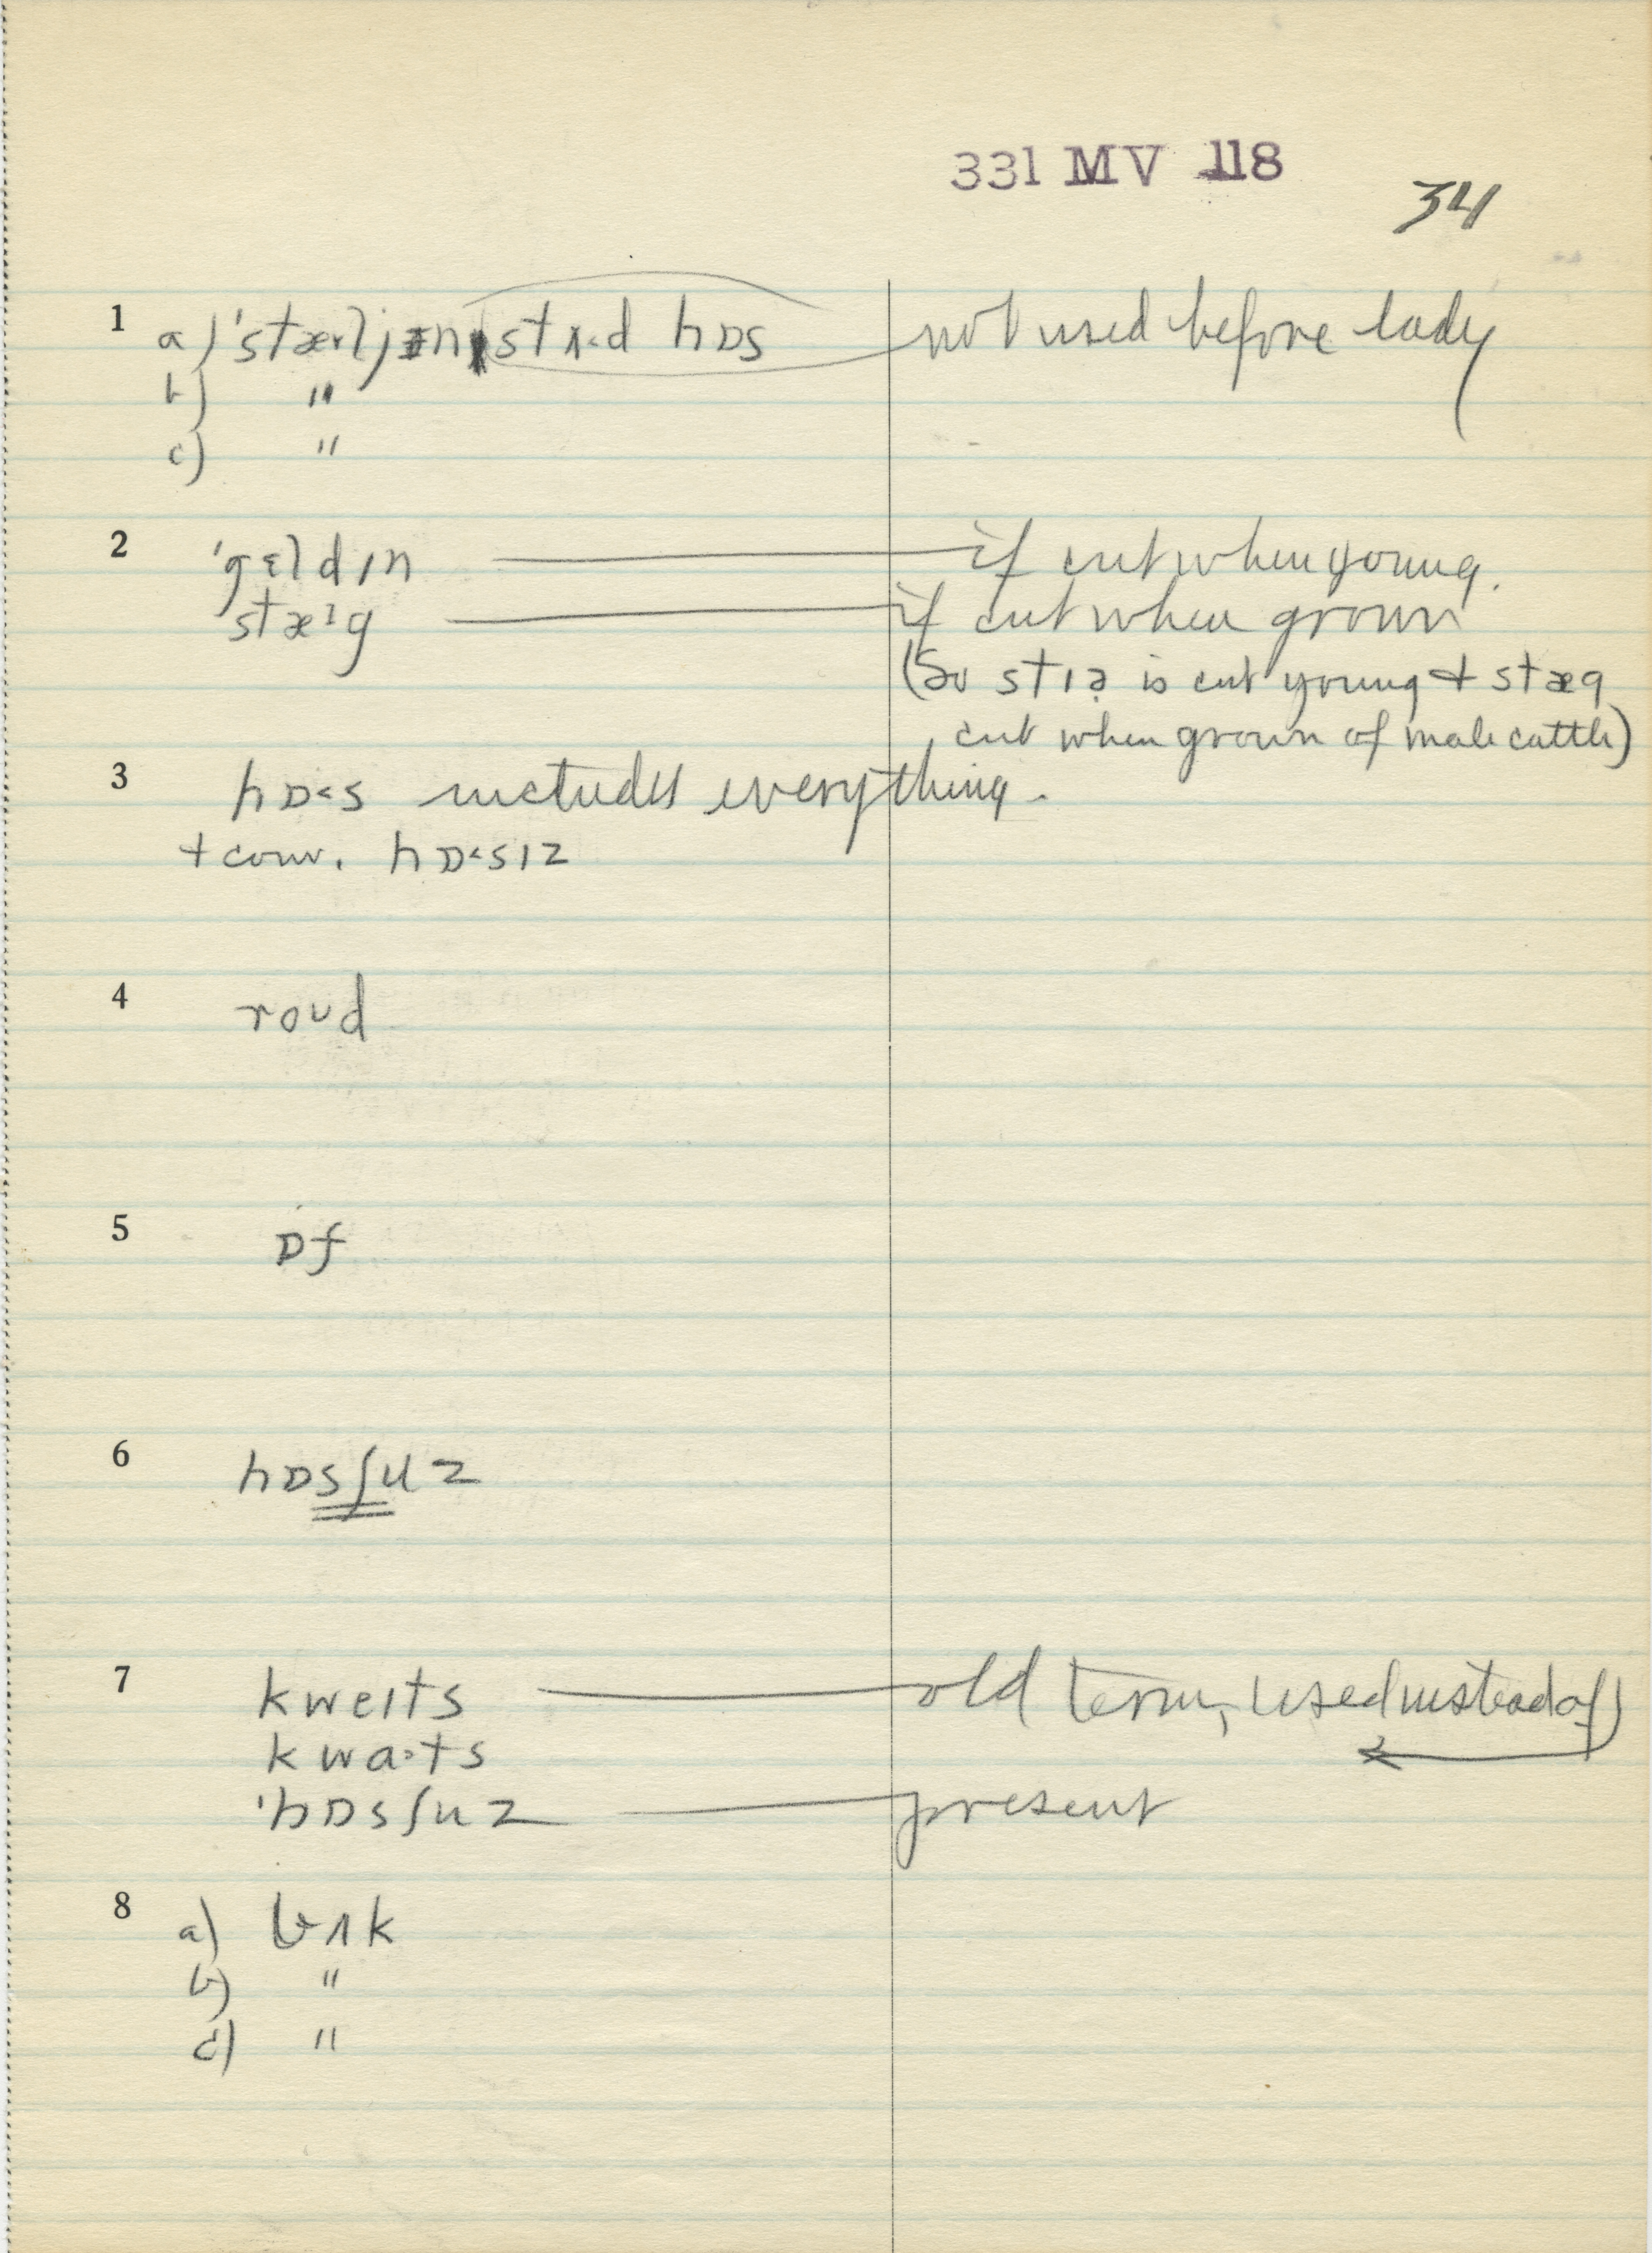 331 MV 118
34
1 a) 'stæljən stʌ˂d hɒs not used before lady
b) "
c) "
2 'gɛldɪn if cut when young.
stæ˃g if cut when grown
(So stɪə is cut young + stæg
cut when grown of male cattle)
3 hɒ˂s includes everything.
+ conv. hɒ˂sɪz
4 roʊd
5 ɒf
6 hɒsʃuz
7 kweɪts old term, used instead of
kwa·ts
'hɒsʃuz present
8 a) bʌk
b) "
c) "